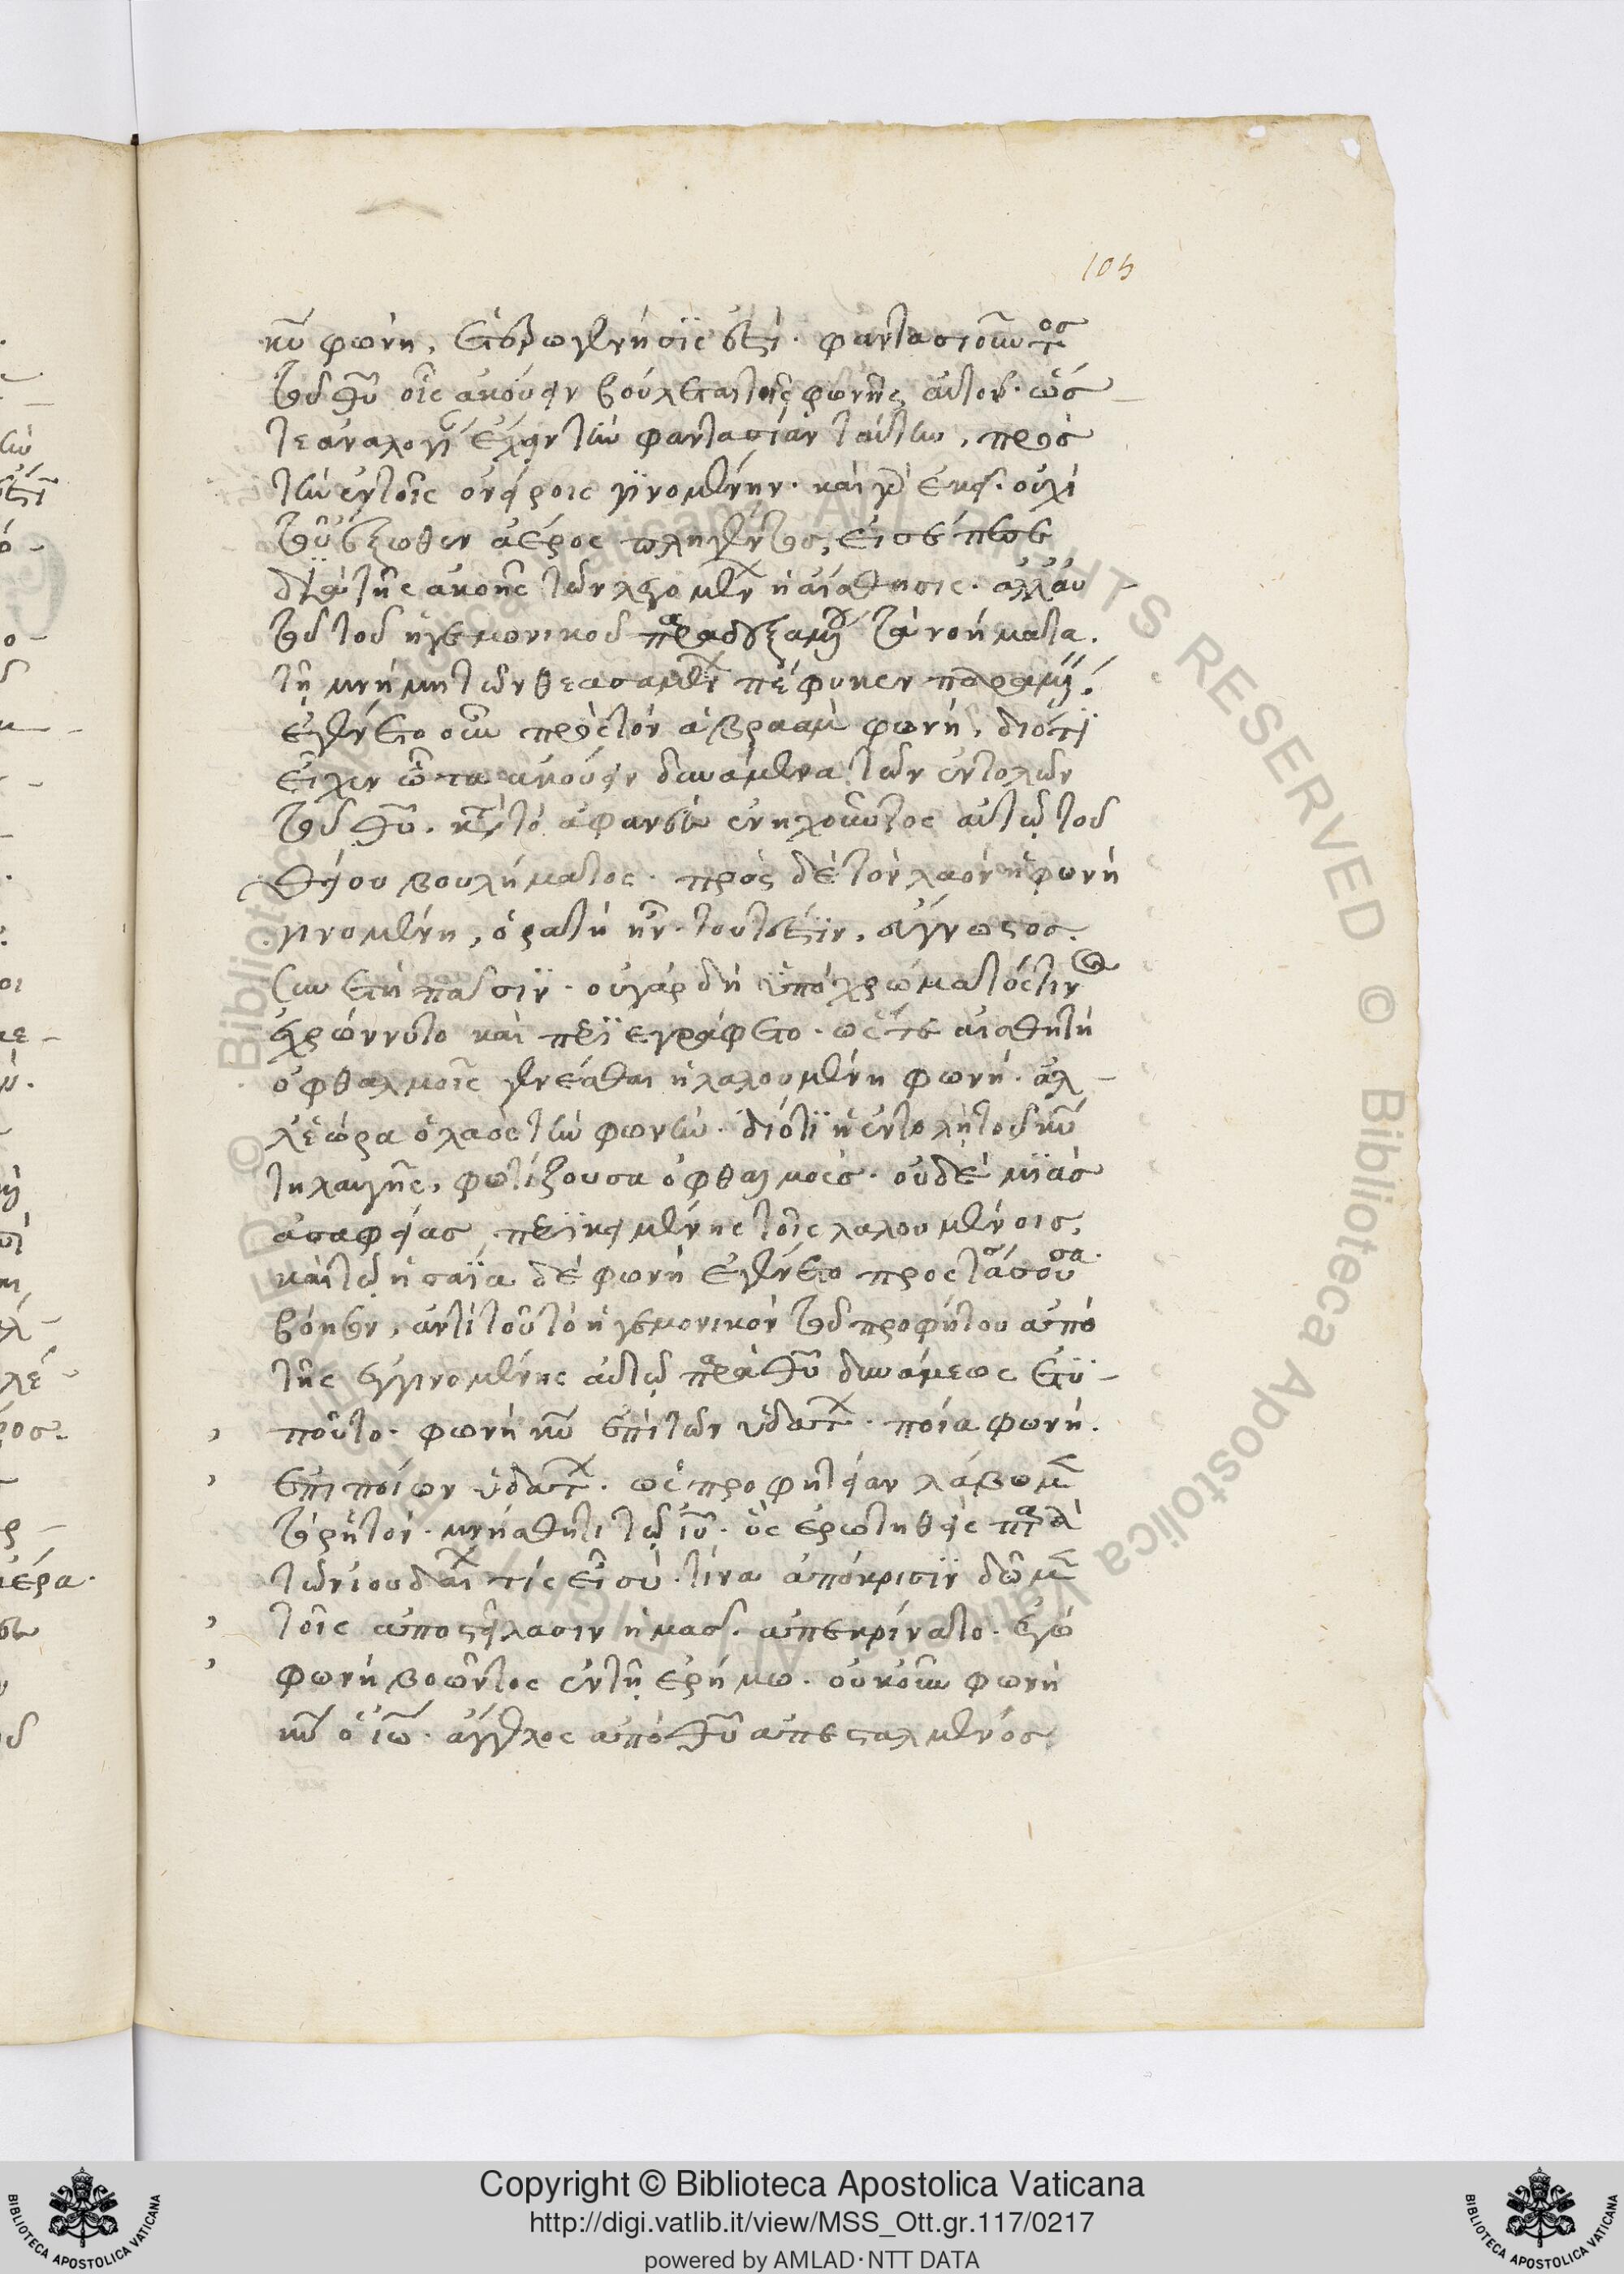 105
κυ φωνή, ἑτερογενής ἐστι. φαντασιουμένος
τοῦ θυ οἷς ἀκούειν βούλεται τῆς φωνῆς αὐτοῦ. ὡς
τε ἀναλογίαν ἔχειν τὴν φαντασίαν ταύτην, πρὸς
τὴν ἐν τοῖς ὀνείροις γινομένην. καὶ γὰρ ἐκεῖ. οὐχὶ
τοῦ ἔξωθεν ἀέρος πληγέντος,
διὰ τῆς ἀκοῆς τῶν λεγομένων ἡ αἴσθησις. ἀλλ' αὐ
τοῦ τοῦ ἡγεμονικοῦ παραδεξαμένου τὰ νοήματα.
τῇ μνήμῃ τῶν θεασαμένων πέφυκεν
ἐγένετο οὖν πρὸς τὸν ἀβραὰμ φωνή, διότι
εἶχεν ὦτα ἀκούειν δυνάμενα τῶν ἐντολῶν
τοῦ θυ. κατὰ τὸ ἀφανὲς ἐνηχοῦντος αὐτῷ τοῦ
θείου βουλήματος. πρὸς δὲ τὸν λαὸν ἡ φωνὴ
γινομένη, ὁρατὴ ἦν. τουτέστιν, σύγνωστος.
συνετὴ πᾶσιν. οὐ γὰρ δὴ ὑπὸ χρώματός τινος
ἐχρώννυτο καὶ περιεγράφετο. ὥστε αἰσθητὴ
ὀφθαλμοῖς γενέσθαι ἡ λαλουμένη φωνή. ἀλ
λ' ἑώρα ὁ λαὸς τὴν φωνήν. διότι ἡ ἐντολὴ τοῦ κυ
τηλαυγῆς, φωτίζουσα ὀφθαλμούς. οὐδεμιᾶς
ἀσαφείας περικειμένης τοῖς λαλουμένοις,
καὶ τῷ ἡσαΐα δὲ φωνὴ ἐγένετο προστάσσουσα
βόησον, ἀντὶ τοῦ τὸ ἡγεμονικὸν τοῦ προφήτου ἀπὸ
τῆς ἐγγινομένης αὐτῷ παρὰ θυ δυνάμεως ἐτυ
ποῦτο. φωνὴ κυ ἐπὶ τῶν ὑδάτων. ποία φωνή.
ἐπὶ ποίων ὑδάτων. ὡς προφητείαν λάβωμεν
τὸ ῥητόν. μνήσθητι τῷ ιυ. ὃς ἐρωτηθεὶς παρὰ
τῶν ἰουδαίων τίς εἶ σύ. τίνα ἀπόκρισιν δῶμεν
τοῖς ἀποστείλασιν ἡμᾶς. ἀπεκρίνατο. ἐγὼ
φωνὴ βοῶντος ἐν τῇ ἐρήμω. οὐκοῦν φωνὴ
κυ ὁ ἰω. ἄγγελος ἀπὸ θυ ἀπεσταλμένος.
Copyright © Biblioteca Apostolica Vaticana
http://digi.vatlib.it/view/MSS_Ott.gr.117/0217
powered by AMLAD·NTT DATA